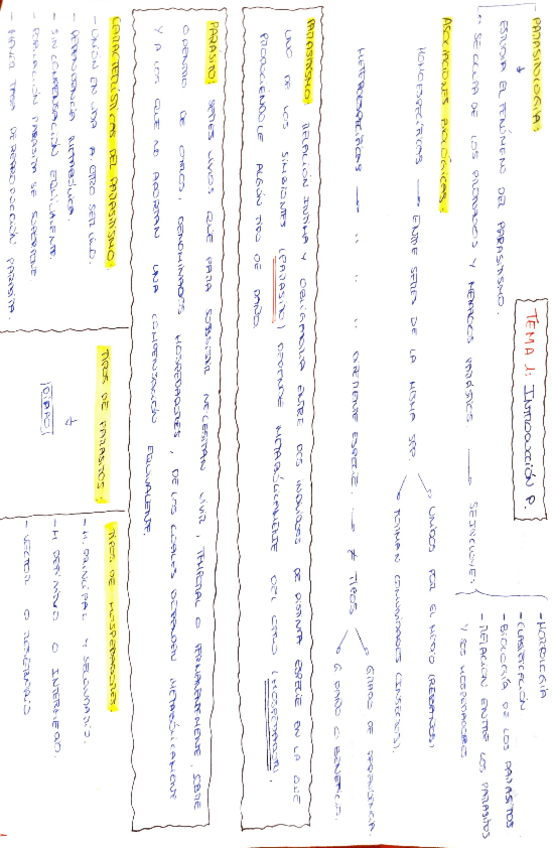 TEMA 1: INTRODUCCIÓN P.
PARASITOLOGÍA:
ESTUDIA EL FENÓMENO DEL PARASITISMO.
SE OCUPA DE LOS PROTOZOOS Y METAZOOS PARÁSITOS → SE INCLUYE:
- MORFOLOGÍA
- CLASIFICACIÓN
- BIOLOGÍA DE LOS PARÁSITOS
- RELACIÓN ENTRE LOS PARÁSITOS
Y SUS HOSPEDADORES
ASOCIACIONES BIOLÓGICAS:
HOMOESPECÍFICAS → ENTRE SERES DE LA MISMA SPP.
UNIDOS POR EL MEDIO (REBAÑOS)
FORMAN COMUNIDADES (INSECTOS).
HETEROESPECÍFICAS → " " " DIFERENTE ESPECIE. → ≠ TIPOS
GRADO DE DEPENDENCIA.
DAÑO O BENEFICIO.
PARASITISMO: RELACIÓN ÍNTIMA Y OBLIGADA ENTRE DOS INDIVIDUOS DE DISTINTA ESPECIE EN LA QUE
UNO DE LOS SIMBIONTES (PARÁSITO) DEPENDE METABÓLICAMENTE DEL OTRO (HOSPEDADOR),
PRODUCIÉNDOLE ALGÚN TIPO DE DAÑO.
PARÁSITO: SERES VIVOS QUE PARA SUBSISTIR NECESITAN VIVIR, TEMPORAL O PERMANENTEMENTE, SOBRE
O DENTRO DE OTROS, DENOMINADOS HOSPEDADORES, DE LOS CUALES DEPENDEN METABÓLICAMENTE
Y A LOS QUE NO APORTAN UNA COMPENSACIÓN EQUIVALENTE.
CARACTERÍSTICAS DEL PARASITISMO:
- UNIÓN EN VIDA A OTRO SER VIVO.
- DEPENDENCIA METABÓLICA.
- SIN COMPENSACIÓN EQUIVALENTE.
- POBLACIÓN PARÁSITA SE SUPERPONE.
- MAYOR TASA DE REPRODUCCIÓN PARÁSITA.
TIPOS DE PARÁSITOS:
TIPOS DE HOSPEDADORES:
- H. PRINCIPAL Y SECUNDARIO.
- H. DEFINITIVO O INTERMEDIO.
- VECTOR O RESERVORIO